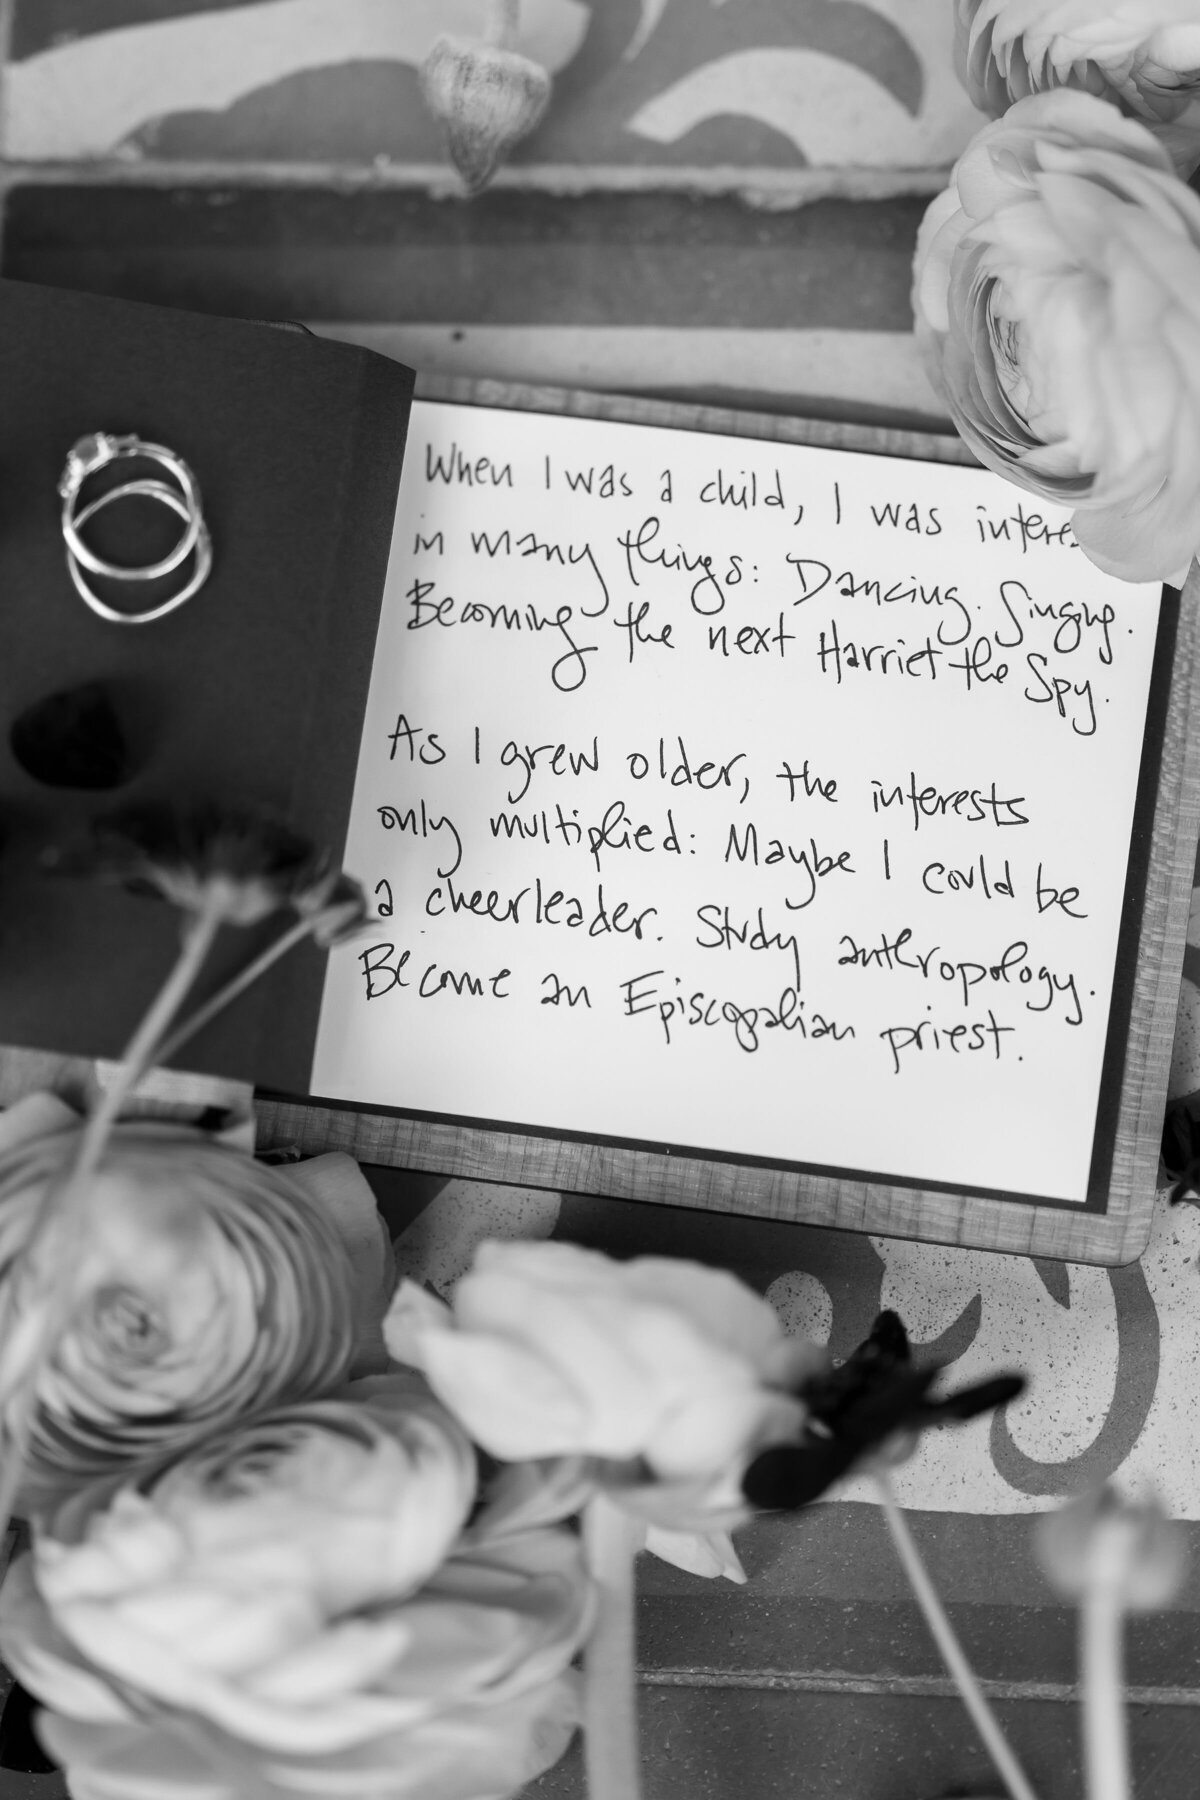 When I was a child, I was intere
in many things: Dancing. Singing.
Becoming the next Harriet the Spy.
As I grew older, the interests
only multiplied: Maybe I could be
a cheerleader. Study anthropology.
Become an Episcopalian priest.